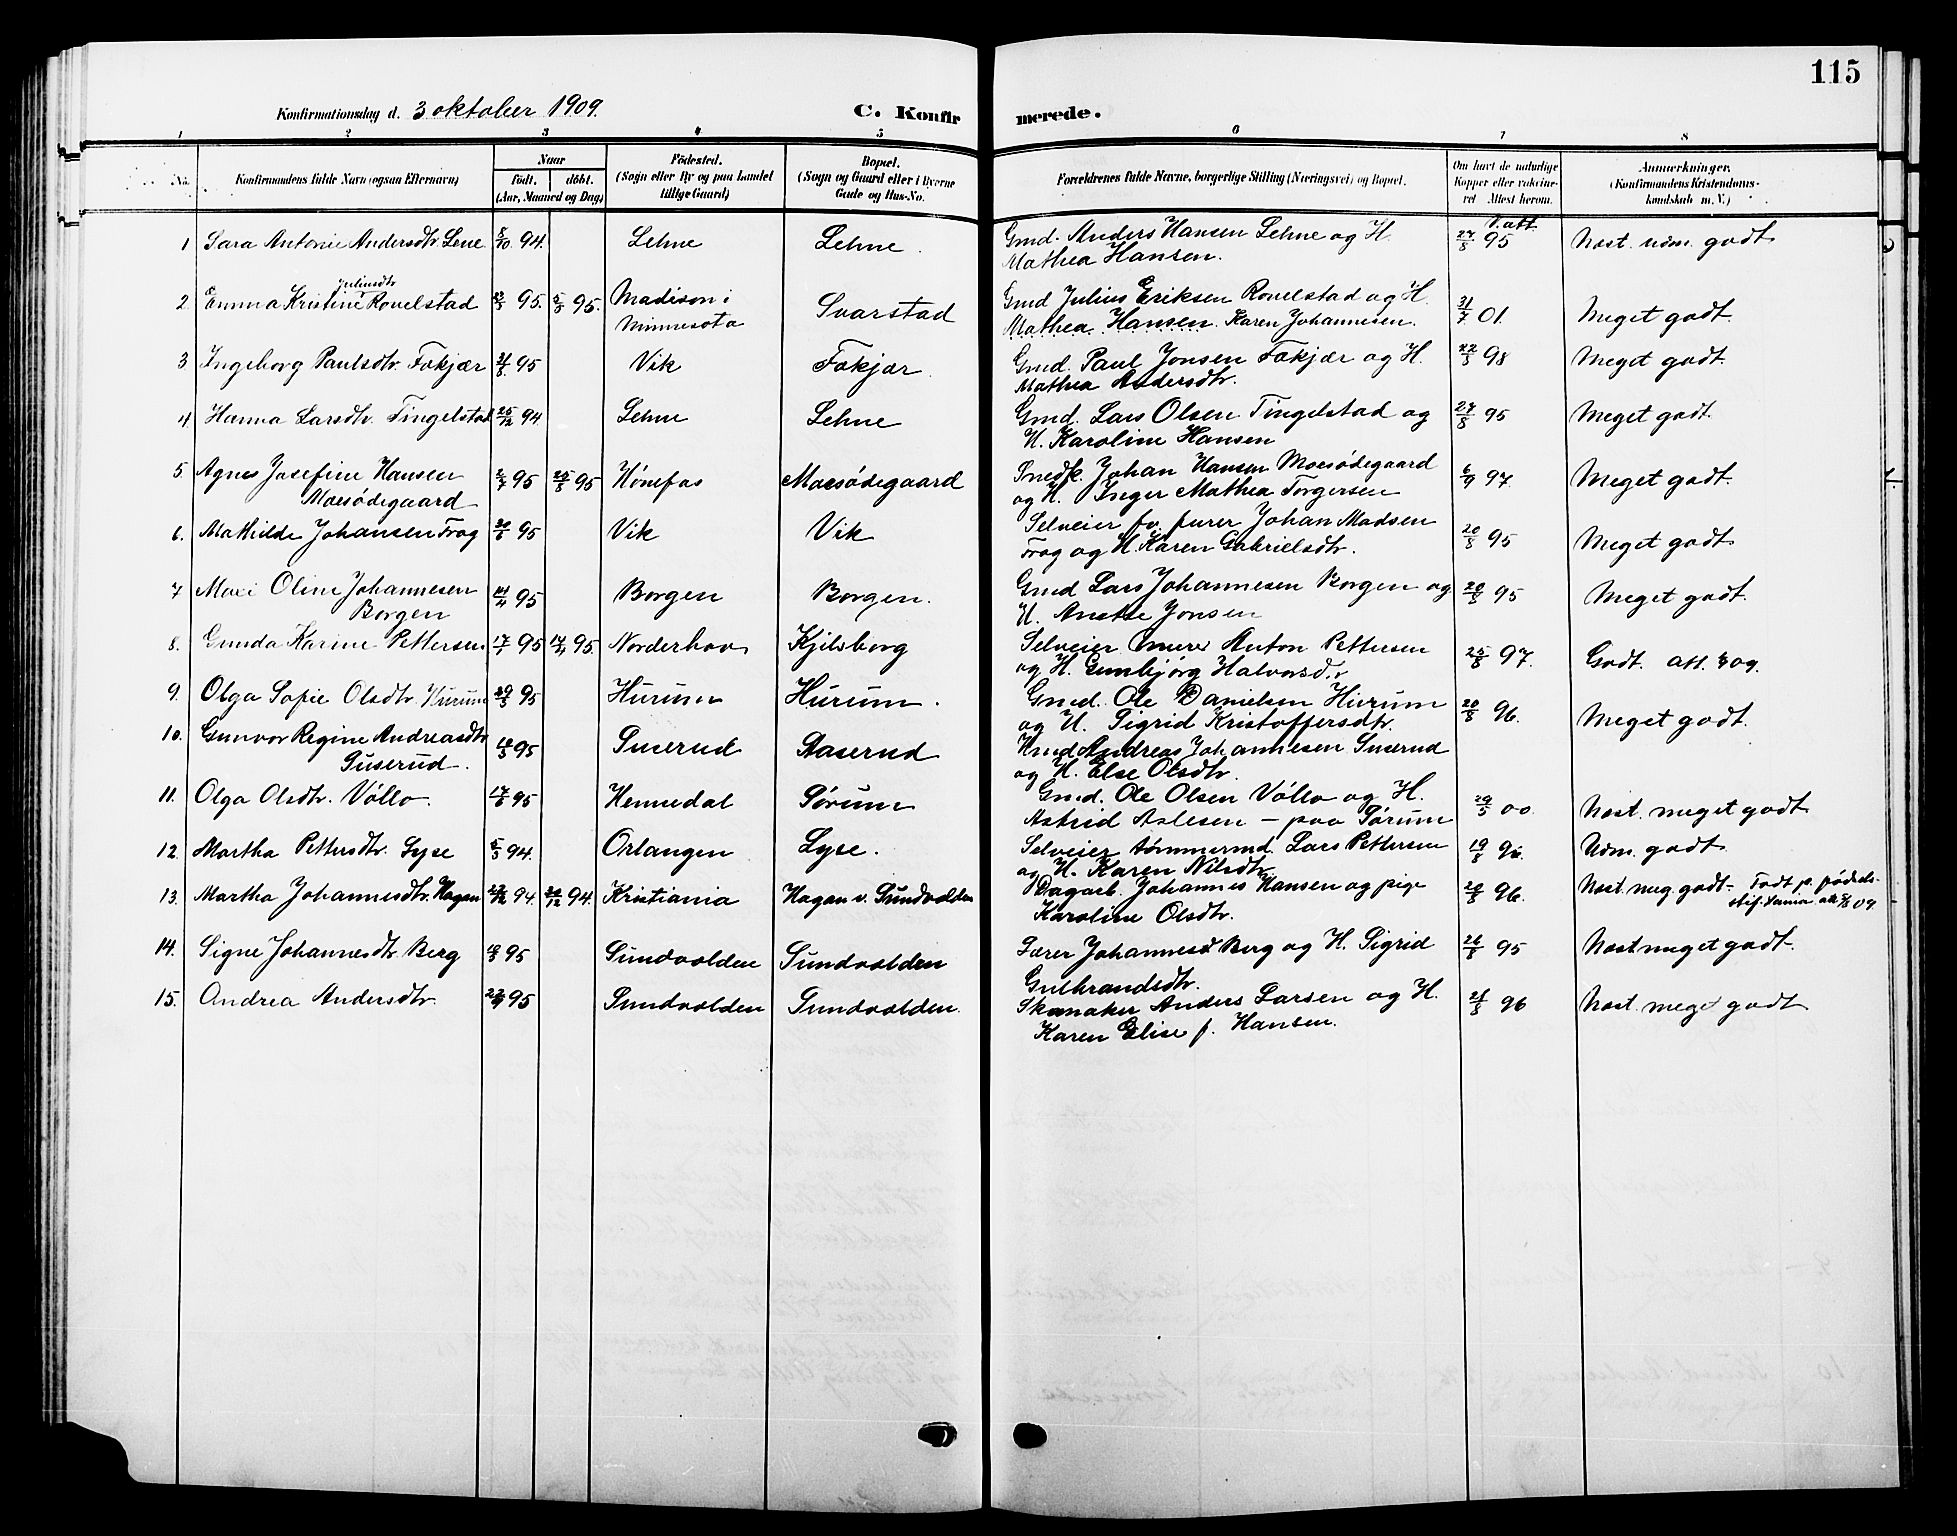 115
Konfirmationsdag d. 3 oktober 1909. C. Konfir merede.
1 2 3 4 5 6 7 8
No.
Konfirmandens fulde Navn (ogsaa Efternavn)
Naar
født. døbt.
(Aar, Maaned og Dag)
Fødested.
(Sogn eller By og paa Landet
tillige Gaard)
Bopæl.
(Sogn og Gaard eller i Byerne
Gade og Hus-No.
Forældrenes fulde Navne, borgerlige Stilling (Næringsvei) og Bopæl.
Om havt de naturlige
Kopper eller vaccine-
ret Attest herom.
Anmærkninger.
(Konfirmandens Kristendoms-
kundskab m. V.)
1 Sara Antonie Andersdtr. Lene 8/10 94. Lehne Lehne. Gmd. Anders Hansen Lehne og H. V. att. 27/8 95 Næst. udm. godt
Mathea Hansen.
Juliusdtr
2. Emma Kristine Rovelstad 95. 5/8 95. Madison i Svarstad Gmd Julius Eriksen Rovelstad og H. 31/7 01. Meget godt.
Minnesota Mathea Hansen. Karen Johannesen.
3 Ingeborg Paulsdtr. Fokjær 95 Vik Fokjær. Gmd. Paul Jonsen Fokjær og H. 22/8 98 Meget godt.
Mathea Andersdtr.
4 Hanna Larsdtr. Tingelstad 25/12 94 Lehne Lehne Gmd. Lars Olsen Tingelstad og 27/8 95 Meget godt.
H. Karoline Hansen
5. Agnes Josefine Hansen 2/7 95 25/8 95 Hønefos Moesødegaard Snedk. Johan Hansen Moesødegaard 6/9 97. Meget godt.
Moesødegaard og H. Inger Mathea Torgersen
6. Mathilde Johansen Frog 95 Vik Vik Selveier fv. furer Johan Madsen 20/8 95 Meget godt
Frog og H. Karen Gabrielsdtr.
7 Maxi Oline Johannesen 14/4 95 Borgen Borgen. Gmd Lars Johannesen Borgen og 20/8 95 Meget godt.
Borgen H. Anette Jonsen
8. Gunda Karine Pettersen 17/1 95 95. Norderhov Kjilsborg Selveier murer Anton Pettersen 25/8 97. Godt. att. 09.
og H. Gunbjørg Halvorsd.r
9. Olga Sofie Olsdtr. Hurum 95 Hurum Hurum. Gmd. Ole Danielsen Hurum 20/8 96. Meget godt.
og H. Sigrid Kristoffersdtr.
10. Gunvor Regine Andreasdtr 95 Suserud Staserud Hmd Andreas Johannesen Suserud
Suserud. og H. Else Olsdtr.
11. Olga Olsdtr. Vøllo. 95 Hemsedal Sørum Gmd. Ole Olsen Vøllo og H. 29/5 00. Næst. meget godt
Astrid Aslesen – paa Sørum
12. Martha Pettersdtr. Lyse 94. Orlangen Lyse. Selveier tømmermd. Lars Pettersen 19/8 96. Udm. godt
og H. Karen Nilsdtr.
13. Martha Johannesdtr. Hagan 94. 94. Kristiania Hagan v. Sundvolden Dagarb. Johannes Hansen og pige 20/8 96. Næst. meg. godt – Født p. fødsels-
Karoline Olsdtr. stif. 09.
14. Signe Johannesdtr. Berg 95 Sundvolden Sundvolden Lærer Johannes Berg og H. Sigrid 26/8 95 Næst meget godt –
Gulbrandsdtr.
15. Andrea Andersdtr. 95 Sundvolden Sundvolden. Skomaker Anders Larsen og H. 21/8 96 Næst. meget godt
Karen Elise f. Hansen.